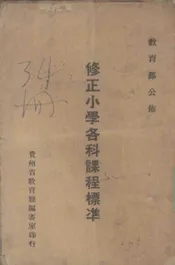 教育部公佈
修正小學各科課程標準
貴州省教育廳編審室印行